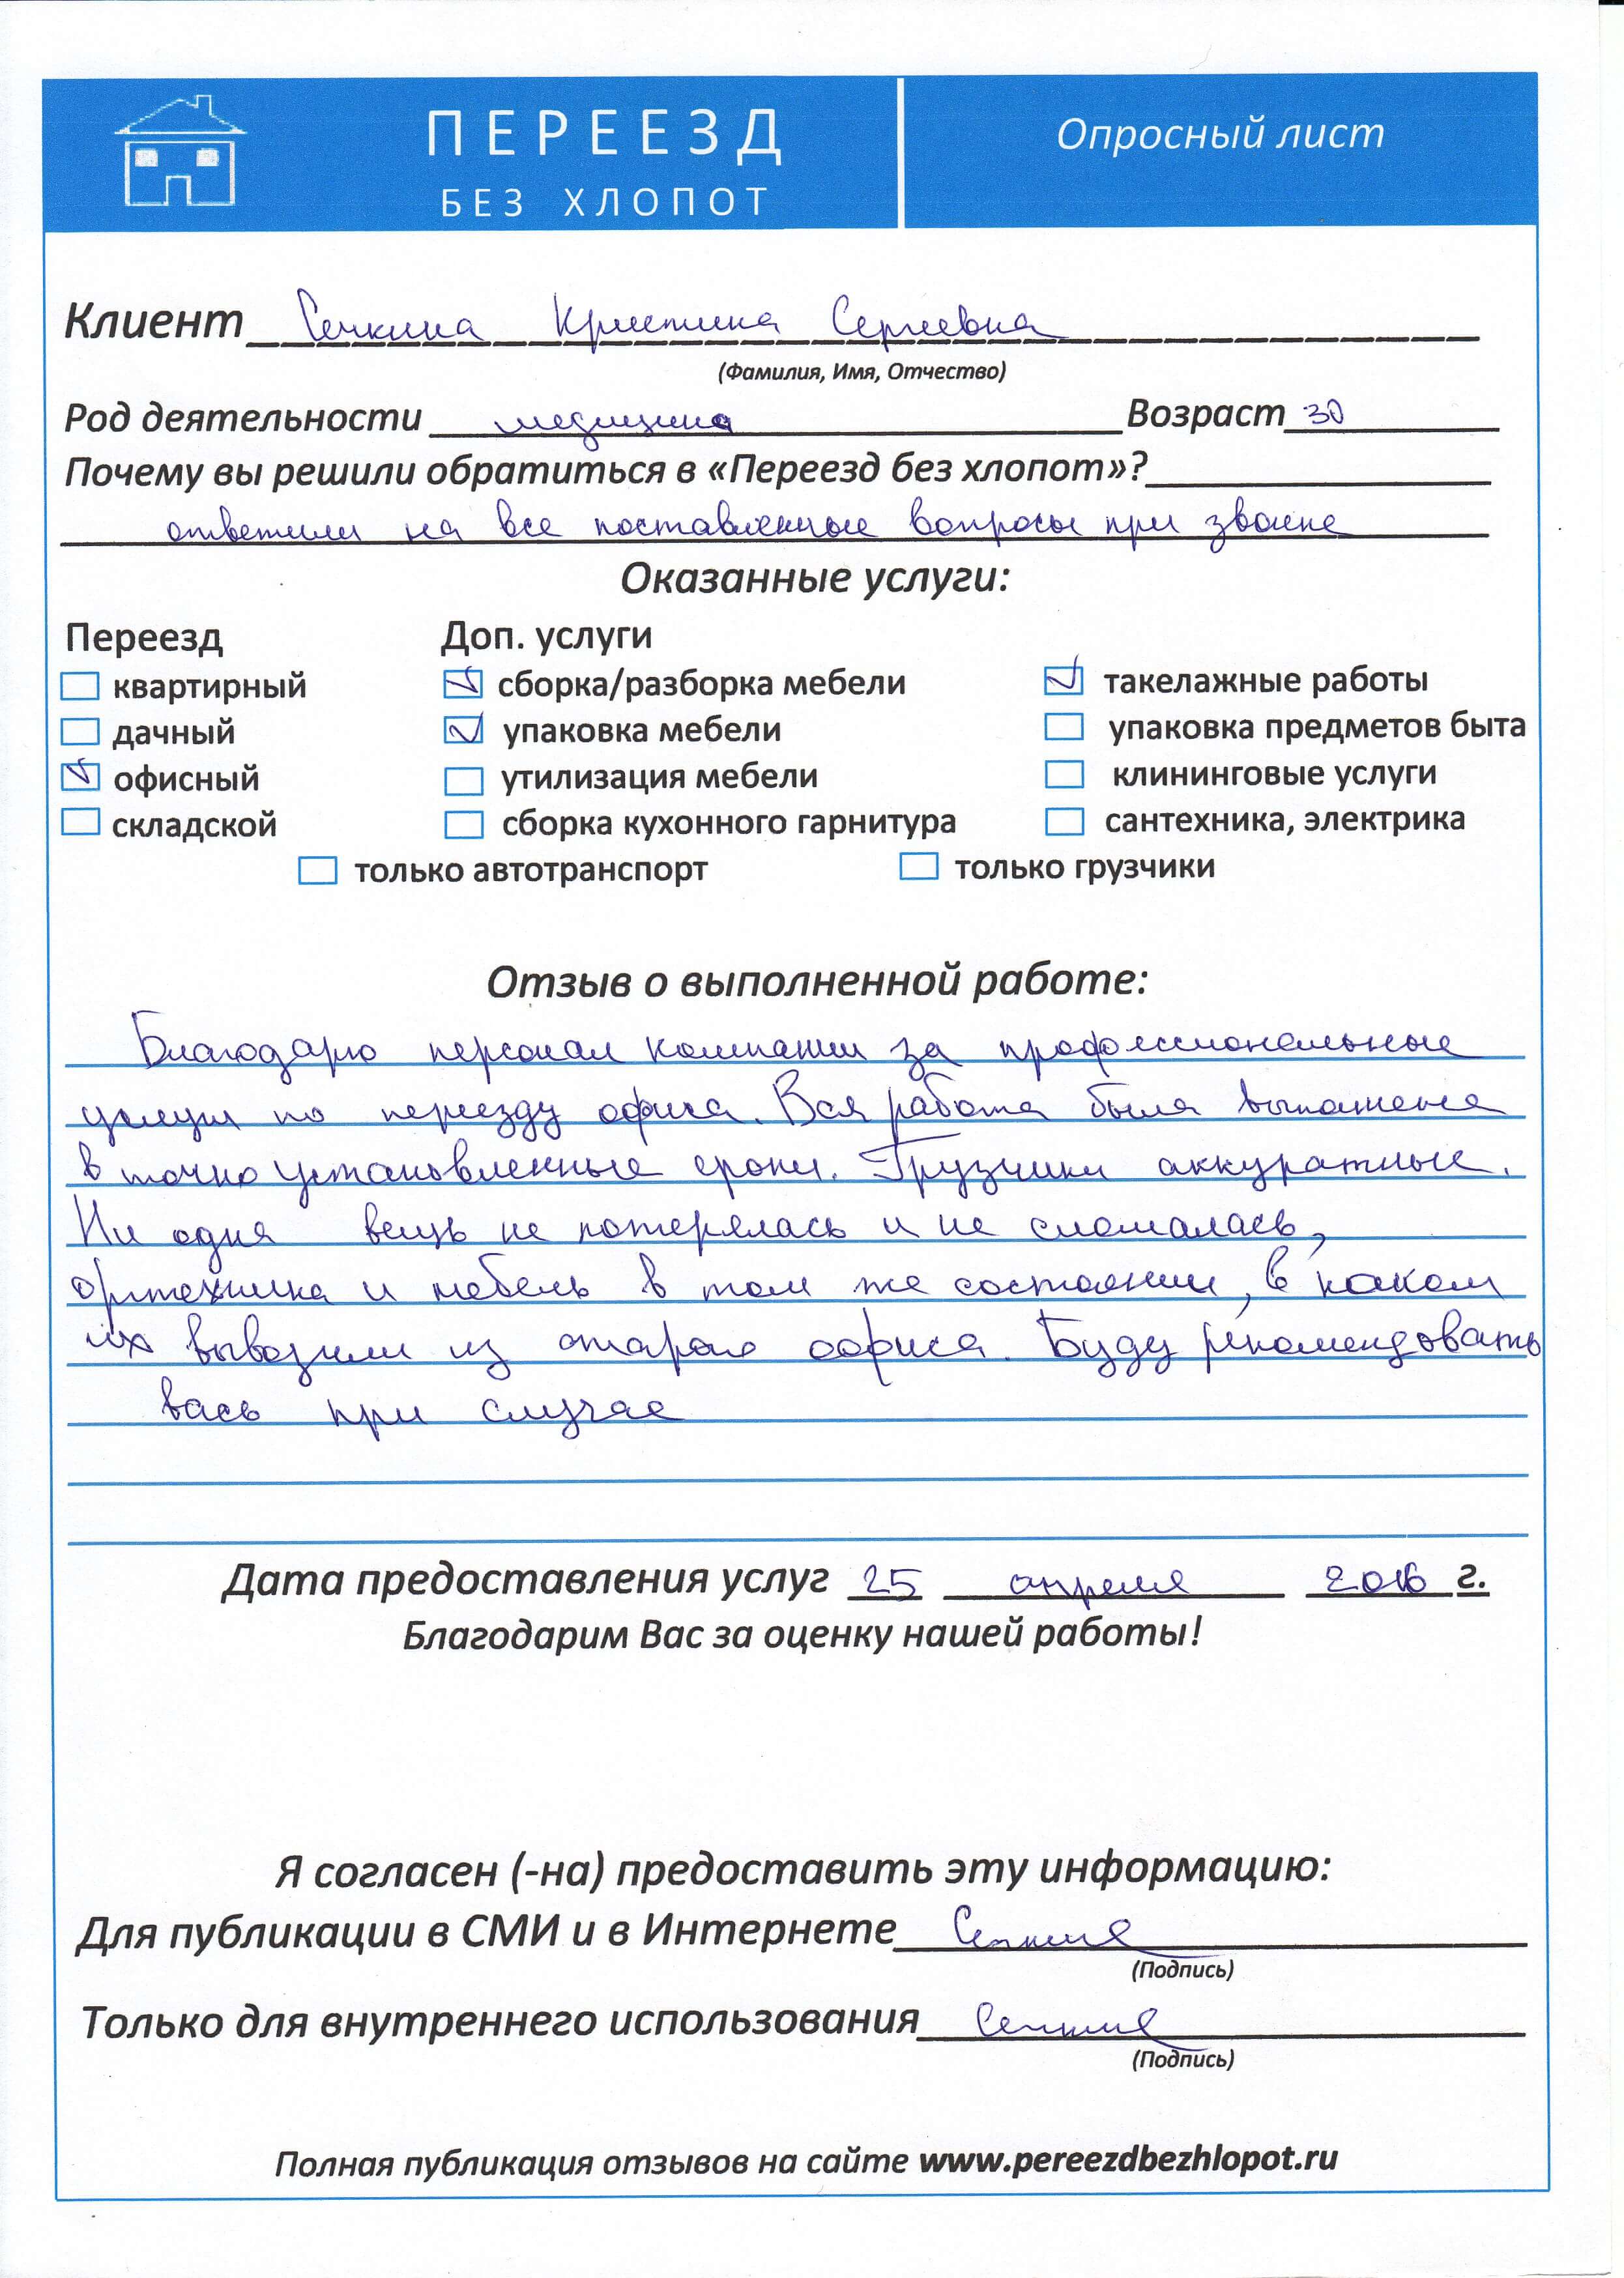 ПЕРЕЕЗД
БЕЗ ХЛОПОТ
Опросный лист
Клиент Сечкина Кристина Сергеевна
(Фамилия, Имя, Отчество)
Род деятельности медицина Возраст 30
Почему вы решили обратиться в «Переезд без хлопот»?
ответили на все поставленные вопросы при звонке
Оказанные услуги:
Переезд Доп. услуги
квартирный сборка/разборка мебели такелажные работы
дачный упаковка мебели упаковка предметов быта
офисный утилизация мебели клининговые услуги
складской сборка кухонного гарнитура сантехника, электрика
только автотранспорт только грузчики
Отзыв о выполненной работе:
Благодарю персонал компании за профессиональные
услуги по переезду офиса. Вся работа была выполнена
в точно установленные сроки. Грузчики аккуратные.
Ни одна вещь не потерялась и не сломалась,
оргтехника и мебель в том же состоянии, в каком
их вывозили из старого офиса. Буду рекомендовать
вась при случае
Дата предоставления услуг 25 апреля 2016 г.
Благодарим Вас за оценку нашей работы!
Я согласен (-на) предоставить эту информацию:
Для публикации в СМИ и в Интернете
(Подпись)
Только для внутреннего использования
(Подпись)
Полная публикация отзывов на сайте www.pereezdbezhlopot.ru